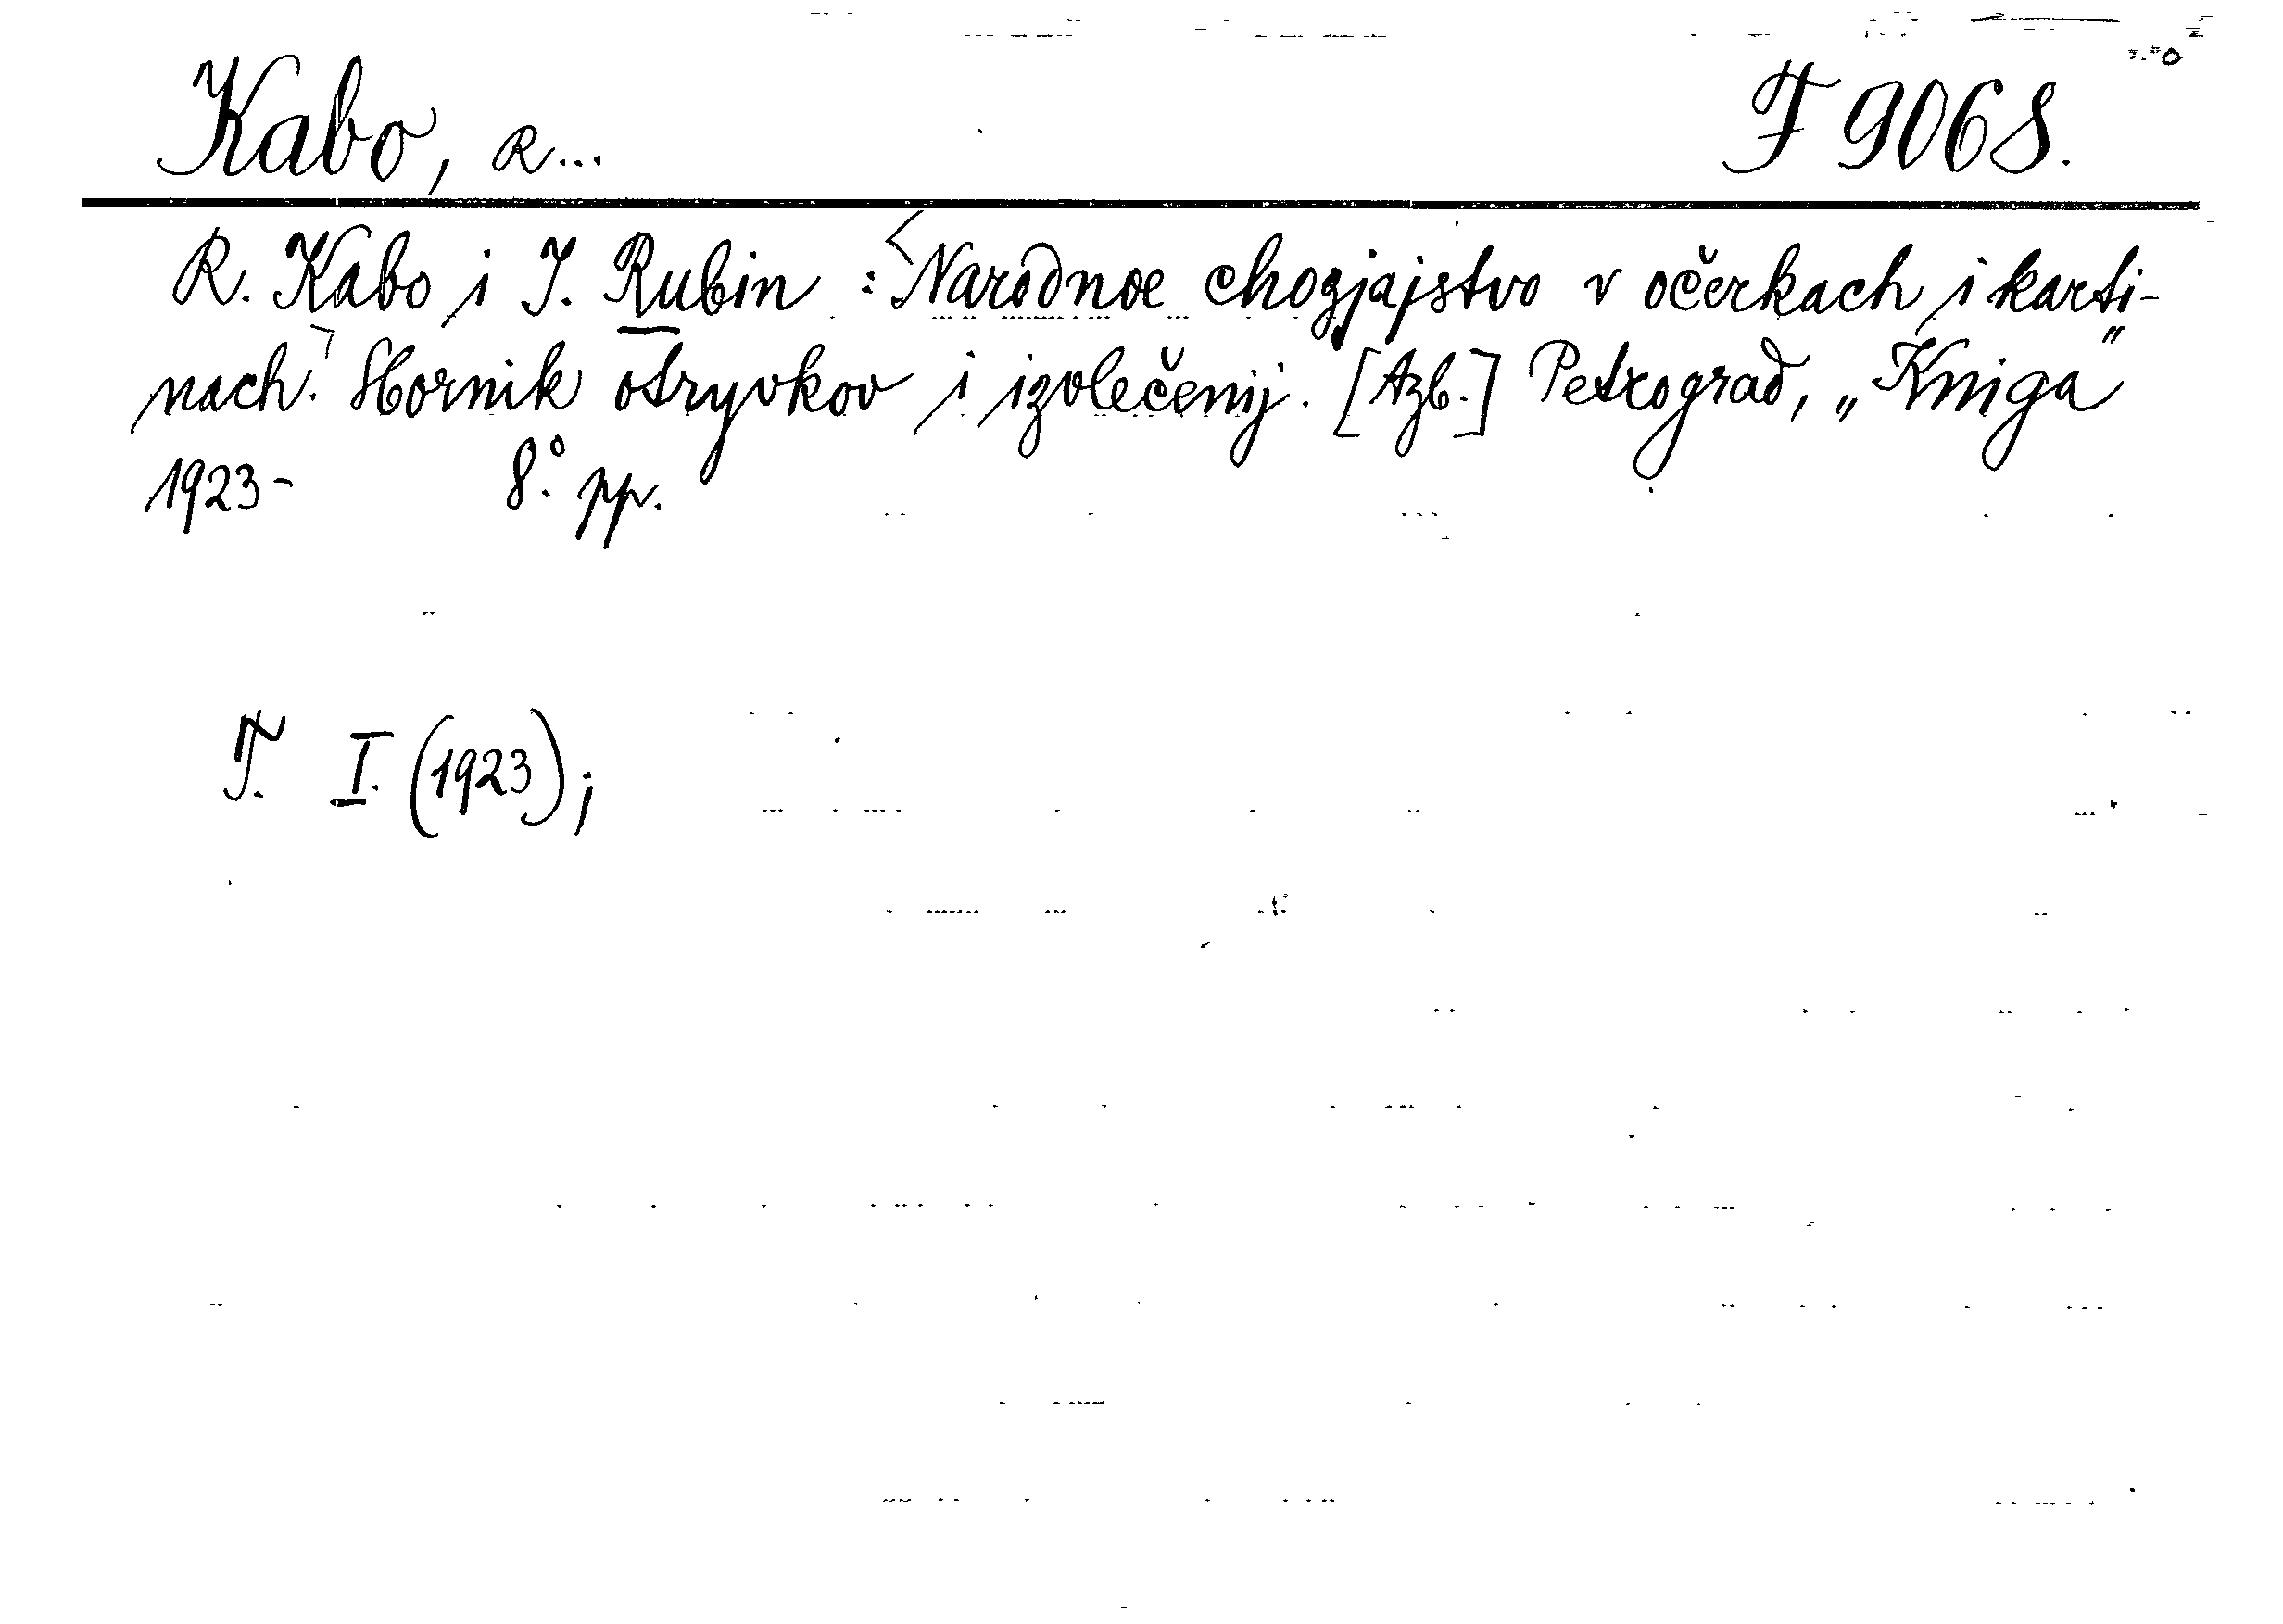 Kabo, R... F 9068.
R. Kabo i I. Rubin : <Narodnoe chozjajstvo v očerkach i karti-
nach.> Sbornik otryvkov i izvlečenij. [Azb.] Petrograd, „Kniga"
1923- 8.° pp.
T. I. (1923);